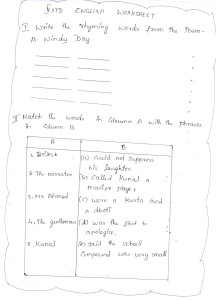 STD ENGLISH WORKSHEET
I Write the rhyming words from the Poem-
A Windy Day.
II Match the words in Column A with the phrases
in Column B
A B
(a) could not suppress
his laughter.
2. The narrator (b) called Kunal a
master player
3. Mr. Ahmed (c) wore a Kurta and
a dhoti
4. The gentleman (d) was the first to
apologize.
5. Kunal (e) said the school
Compound was very small